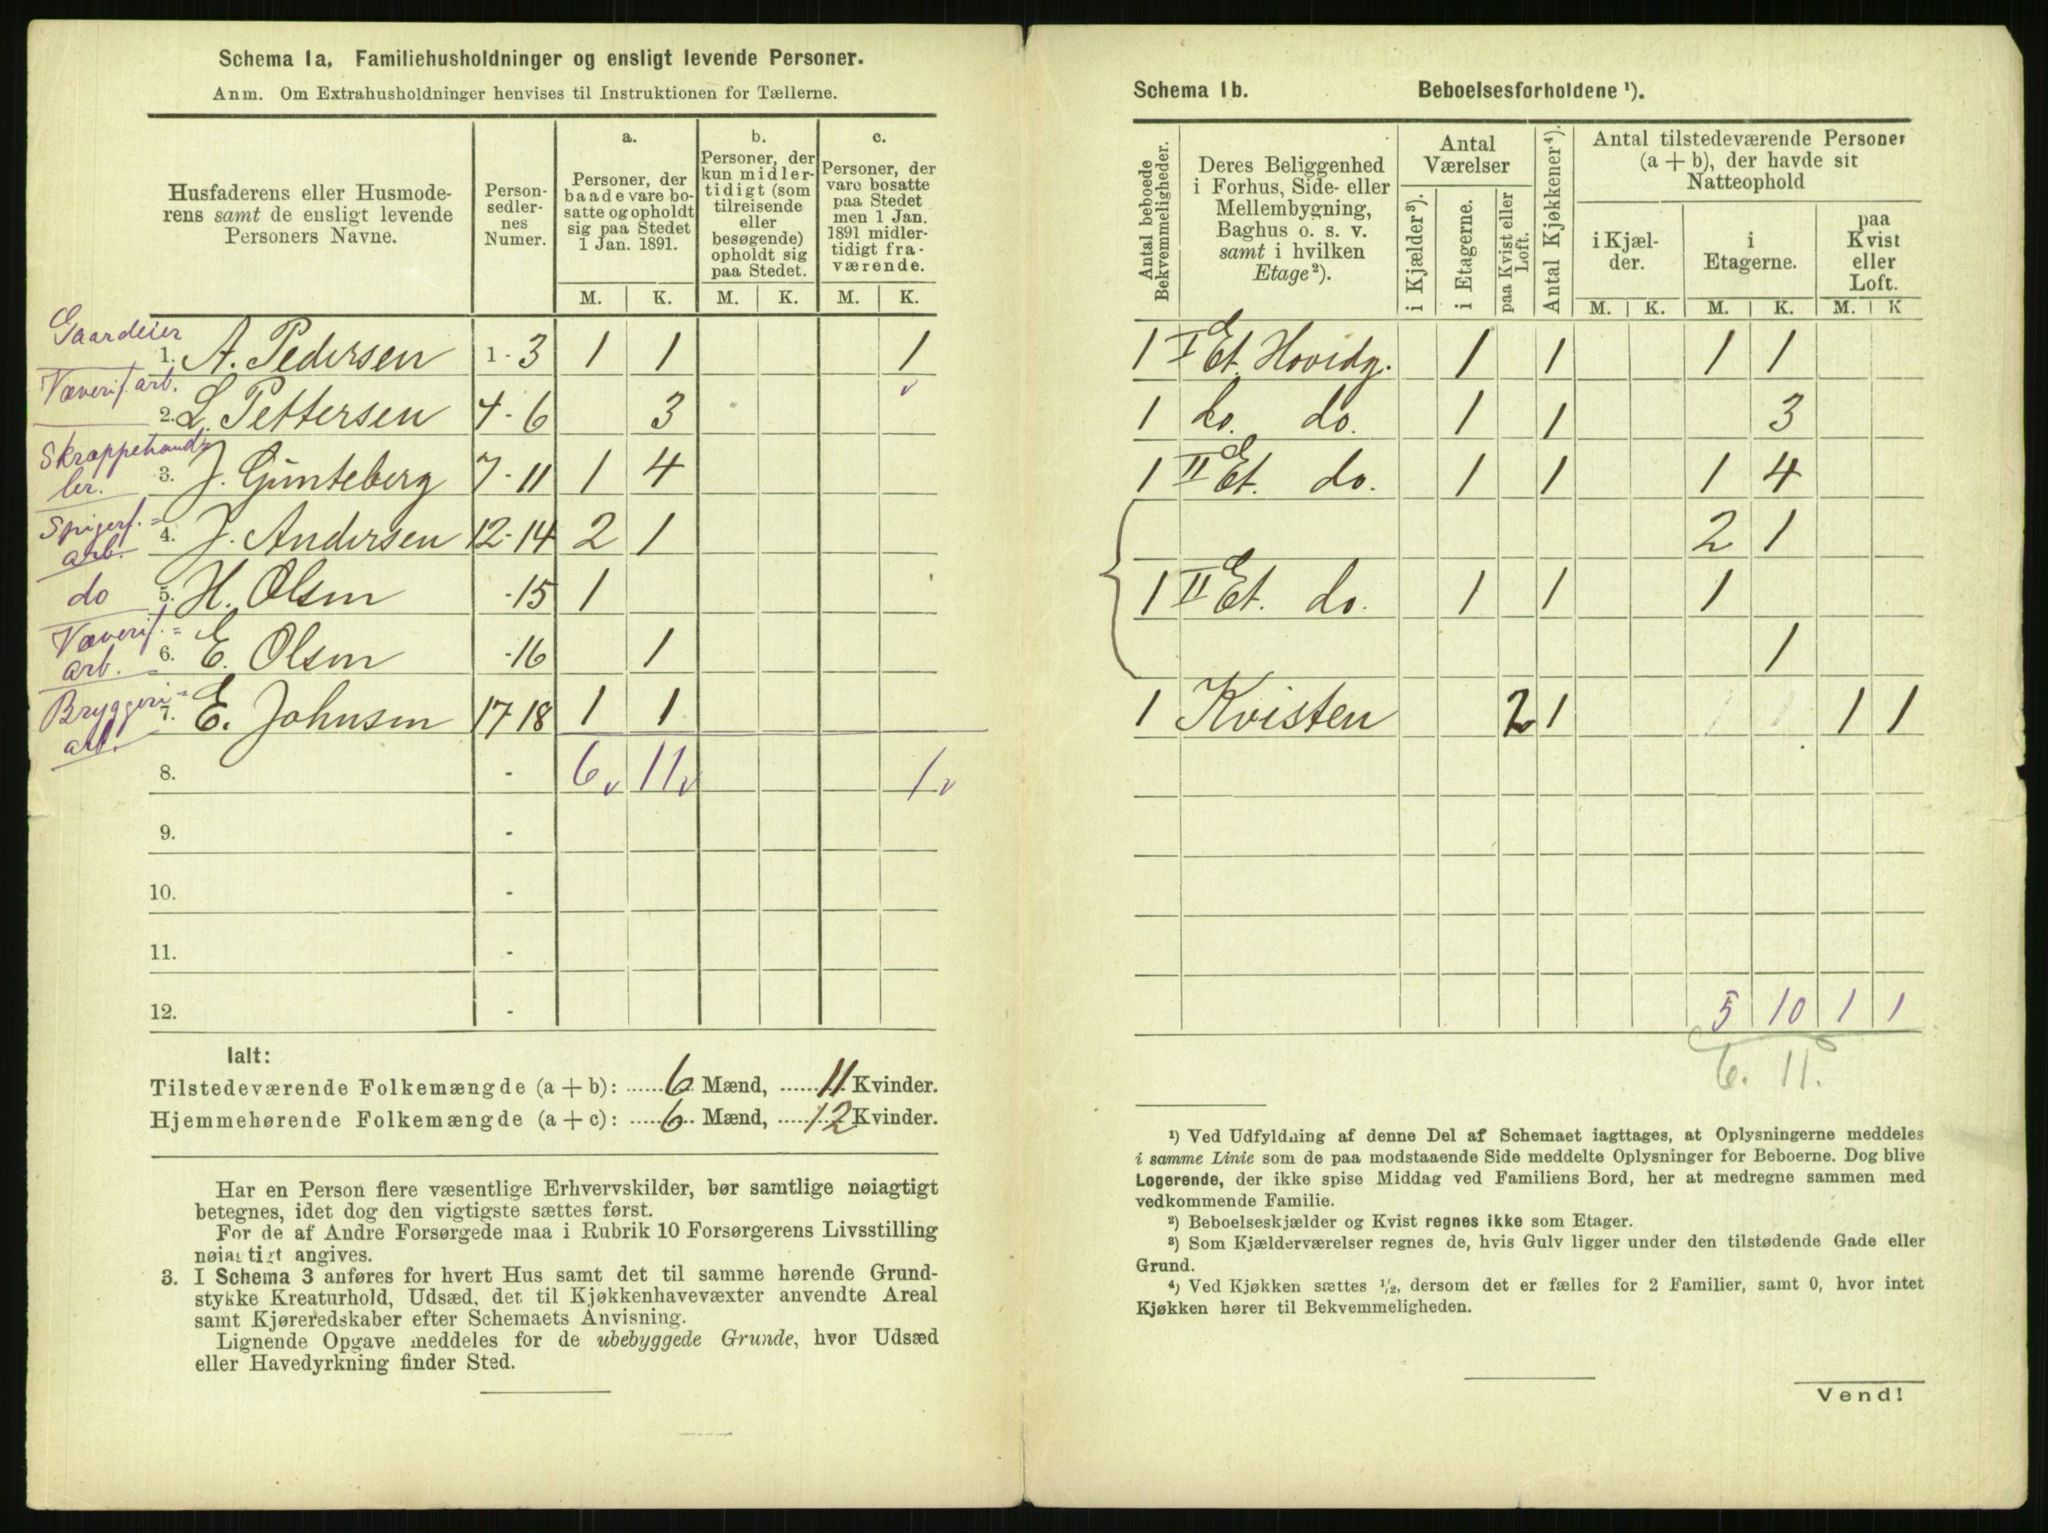 Schema 1a. Familiehusholdninger og ensligt levende Personer.
Anm. Om Extrahusholdninger henvises til Instruktionen for Tællerne.
Husfaderens eller Husmode-
rens samt de ensligt levende
Personers Navne.
Person-
sedler-
nes
Numer.
a.
Personer, der
baade vare bo-
satte og opholdt
sig paa Stedet
1 Jan. 1891.
b.
Personer, der
kun midler-
tidigt (som
tilreisende
eller
besøgende)
opholdt sig
paa Stedet.
c.
Personer, der
vare bosatte
paa Stedet
men 1 Jan.
1891 midler-
tidigt fra-
værende.
M. K. M. K. M. K.
Gaardeier
1. A. Pedersen 1-3 1 1 1
Væverif. arb.
2. L. Pettersen 4-6 3
Skræppehand-
ler. 3. J. Günteberg 7-11 1 4
Spigerf.=
arb. 4. J. Andersen 12-14 2 1
do 5. H. Olsen -15 1
Væverif.=
arb. 6. E. Olsen -16 1
Bryggeri=
arb. 7. E. Johnsen 17-18 1 1
8. - 6 11 1
9. -
10. -
11. -
12. -
Ialt:
Tilstedeværende Folkemængde (a + b): 6 Mænd, 11 Kvinder.
Hjemmehørende Folkemængde (a + c): 6 Mænd, 12 Kvinder.
Har en Person flere væsentlige Erhvervskilder, bør samtlige nøiagtigt
betegnes, idet dog den vigtigste sættes først.
For de af Andre Forsørgede maa i Rubrik 10 Forsørgerens Livsstilling
nøiagtigt angives.
3. I Schema 3 anføres for hvert Hus samt det til samme hørende Grund-
stykke Kreaturhold, Udsæd, det til Kjøkkenhavevæxter anvendte Areal
samt Kjøreredskaber efter Schemaets Anvisning.
Lignende Opgave meddeles for de ubebyggede Grunde, hvor Udsæd
eller Havedyrkning finder Sted.
Schema 1b. Beboelsesforholdene ¹).
Antal beboede
Bekvemmeligheder.
Deres Beliggenhed
i Forhus, Side- eller
Mellembygning,
Baghus o. s. v.
samt i hvilken
Etage ²).
Antal
Værelser
i Kjælder ³).
i Etagerne.
paa Kvist eller
Loft.
Antal Kjøkkener ⁴).
Antal tilstedeværende Personer
(a + b), der havde sit
Natteophold
i Kjæl-
der.
i
Etagerne.
paa
Kvist
eller
Loft.
M. K. M. K. M. K
1 I Et. Hovidg. 1 1 1 1
1 do. do. 1 1 3
1 II Et. do. 1 1 1 4
2 1
1 II Et. do. 1 1 1
1
1 Kvisten 2 1 1 1
5 10 1 1
6. 11.
¹) Ved Udfyldning af denne Del af Schemaet iagttages, at Oplysningerne meddeles
i samme Linie som de paa modstaaende Side meddelte Oplysninger for Beboerne. Dog blive
Logerende, der ikke spise Middag ved Familiens Bord, her at medregne sammen med
vedkommende Familie.
²) Beboelseskjælder og Kvist regnes ikke som Etager.
³) Som Kjælderværelser regnes de, hvis Gulv ligger under den tilstødende Gade eller
Grund.
⁴) Ved Kjøkken sættes ¹/₂, dersom det er fælles for 2 Familier, samt 0, hvor intet
Kjøkken hører til Bekvemmeligheden.
Vend!